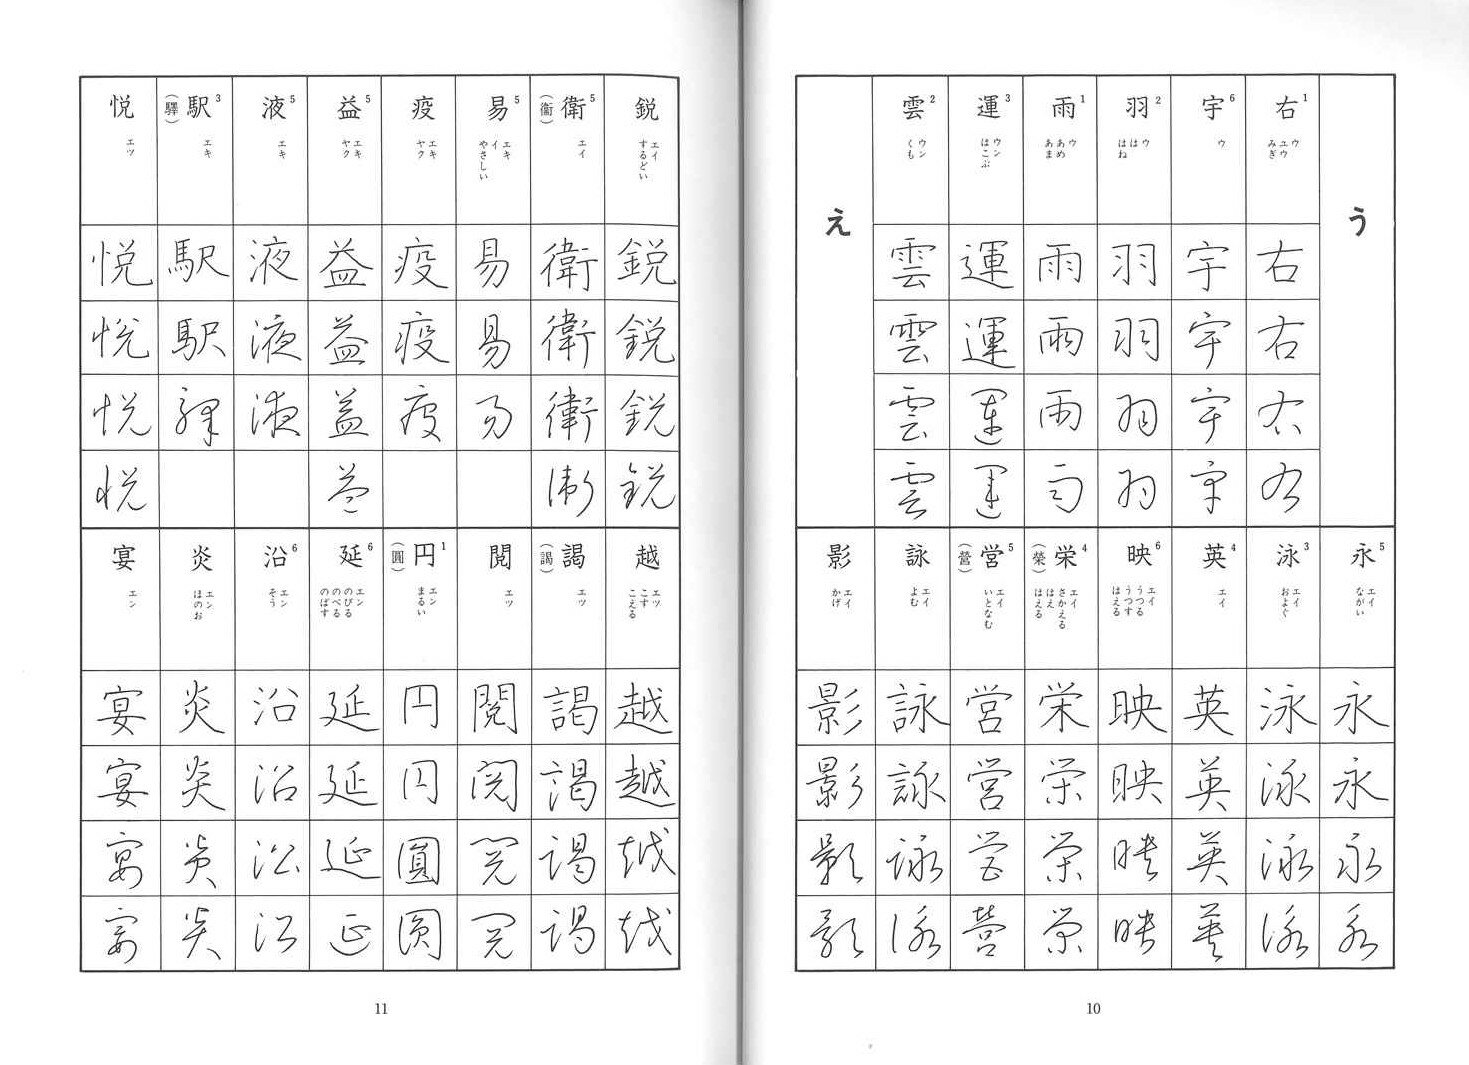 う
右1
ウ
ユウ
みぎ
右
右
右
右
宇6
ウ
宇
宇
宇
宇
羽2
ウ
は
はね
羽
羽
羽
羽
雨1
ウ
あめ
あま
雨
雨
雨
雨
運3
ウン
はこぶ
運
運
運
運
雲2
ウン
くも
雲
雲
雲
雲
え
永5
エイ
ながい
永
永
永
永
泳3
エイ
およぐ
泳
泳
泳
泳
英4
エイ
英
英
英
英
映6
エイ
うつる
うつす
はえる
映
映
映
映
栄4
(榮)
エイ
さかえる
はえ
はえる
栄
栄
栄
栄
営5
(營)
エイ
いとなむ
営
営
営
營
詠
エイ
よむ
詠
詠
詠
詠
影
エイ
かげ
影
影
影
影
10
鋭
エイ
するどい
鋭
鋭
鋭
鋭
衛5
(衞)
エイ
衛
衛
衛
衛
易5
エキ
イ
やさしい
易
易
易
疫
エキ
ヤク
疫
疫
疫
益5
エキ
ヤク
益
益
益
益
液5
エキ
液
液
液
駅3
(驛)
エキ
駅
駅
驛
悦
エツ
悦
悦
悦
悦
越
エツ
こす
こえる
越
越
越
越
謁
(謁)
エツ
謁
謁
謁
謁
閲
エツ
閲
閲
閲
閲
円1
(圓)
エン
まるい
円
円
圓
圓
延6
エン
のびる
のべる
のばす
延
延
延
延
沿6
エン
そう
沿
沿
沿
沿
炎
エン
ほのお
炎
炎
炎
炎
宴
エン
宴
宴
宴
宴
11